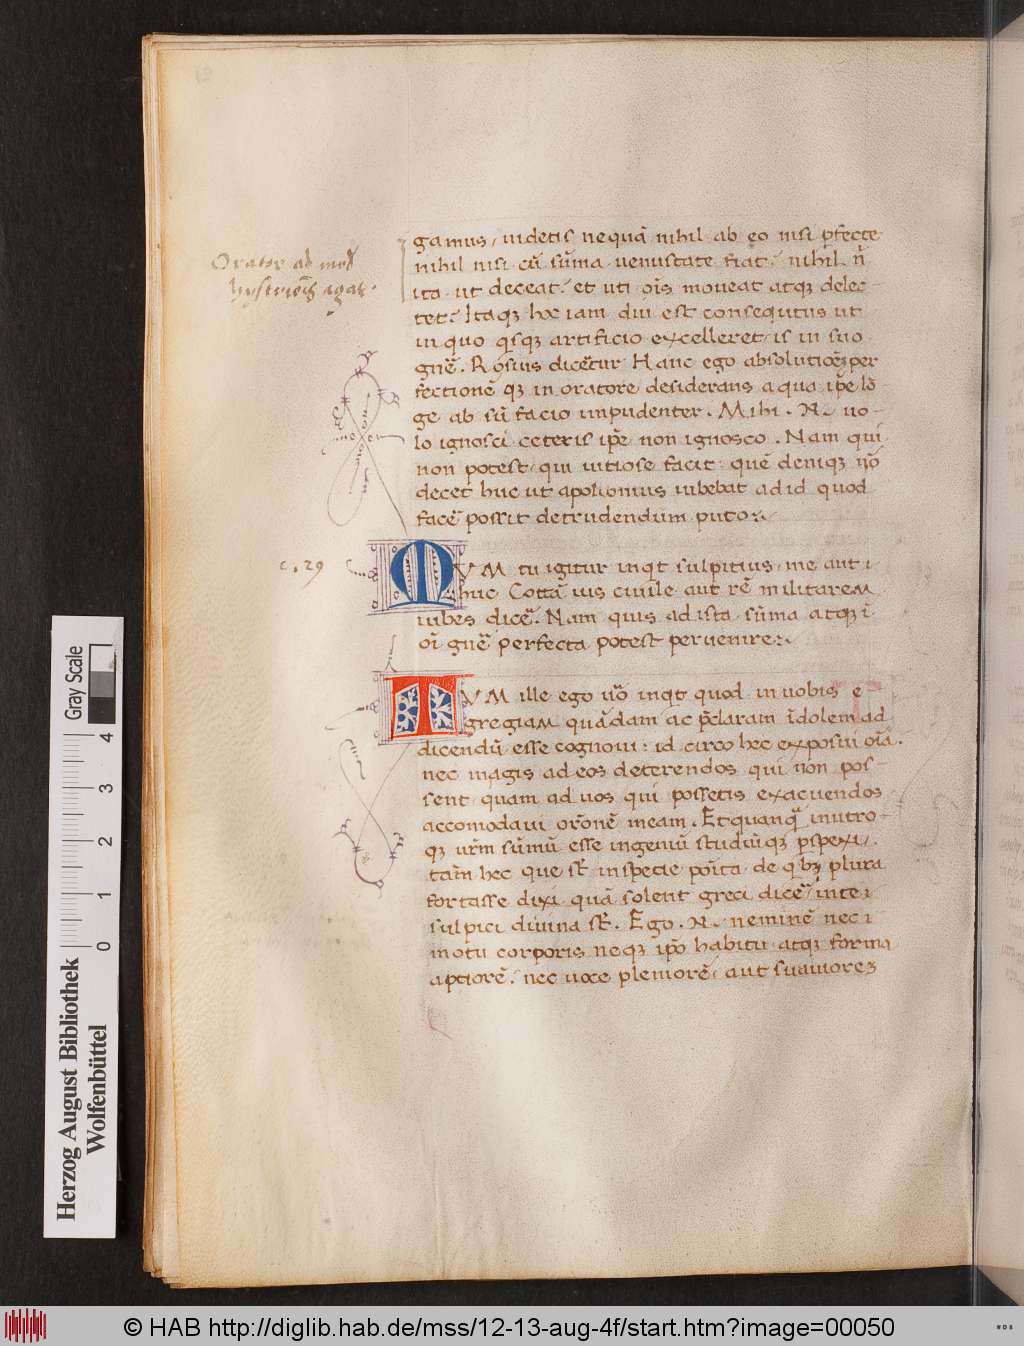 Orator ad mod
hystrionis agat.
gamus, uidetis nequā nihil ab eo nisi pfecte
nihil nisi cū sūma uenustate fiat. nihil n̄
ita ut deceat. et uti oīs moueat atqʒ delec-
tet: Itaqʒ hoc iam diu est consequtus ut
in quo qsqʒ artificio excelleret, is in suo
gnē. Rosius dicēt̄ur Hanc ego absolutionēʒ per
fectionē qʒ in oratore desiderans a qua ip̄e lō-
ge ab sū facio impudenter. Mihi. N. uo-
lo ignosci ceteris ip̄e non ignosco. Nam qui
non potest, qui uitiose facit: quē deniqʒ nō
decet huc ut apolionius iubebat ad id quod
facē possit detrudendum puto:.
c. 29
NVM tu igitur inqt sulpitius, me aut i
huc Cottā ius ciuile aut rē militarem
iubes dicē. Nam quis ad ista sūma atqʒ ī
oī gnē perfecta potest peruenire:.
TVM ille ego uō inqt quod in uobis e
gregiam quādam ac p̄claram īdolem ad
dicendū esse cognoui: id circo hec exposui oīa.
nec magis ad eos deterendos qui non pos-
sent, quam ad uos qui possetis exacuendos
accomodaui orōnē meam. Et quanqā in utro-
qʒ urm̄ sūmū esse ingeniū studiūqʒ pspexi.
tam̄ hec que st̄ in specie pōita, de qbʒ plura
fortasse dixi quā solent greci dicē, inte i
sulpici diuina st̄. Ego. N. neminē nec i
motu corporis neqʒ ip̄o habitu atqʒ forma
aptiorē. nec uoce pleniorē, aut suauioreʒ
Gray Scale
0 1 2 3 4
Herzog August Bibliothek
Wolfenbüttel
© HAB http://diglib.hab.de/mss/12-13-aug-4f/start.htm?image=00050